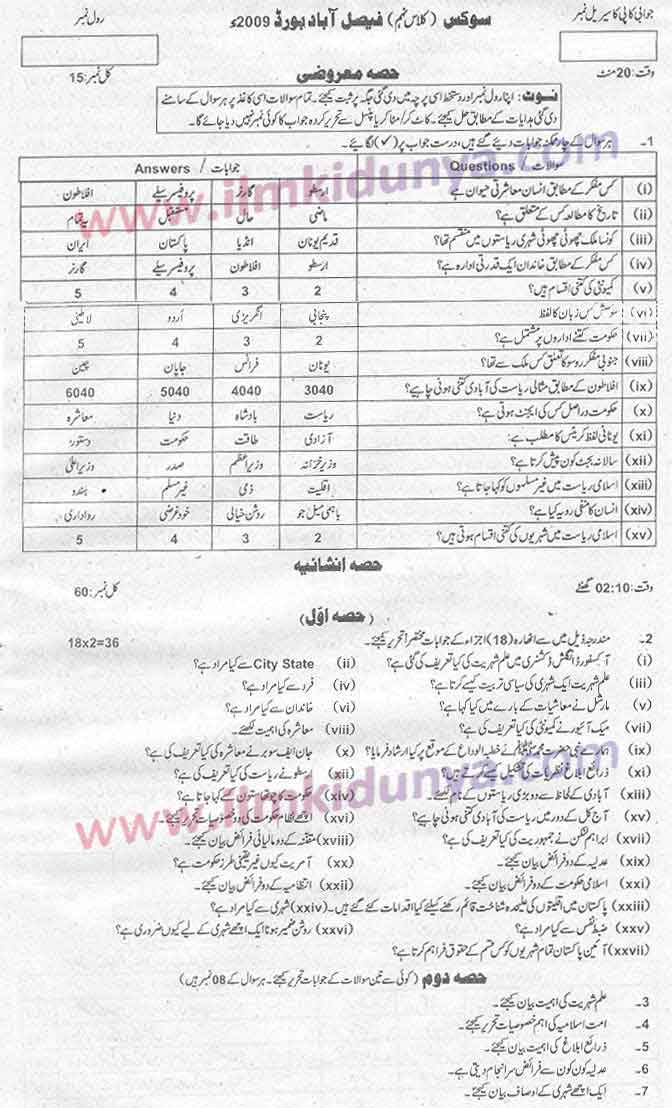 جوابی کاپی کا سیریل نمبر سوکس (کلاس نہم) فیصل آباد بورڈ 2009ء رول نمبر
وقت: 20 منٹ حصہ معروضی کل نمبر: 15
نوٹ: اپنا رول نمبر اور دستخط اسی پرچہ میں دی گئی جگہ پر ثبت کیجئے۔ تمام سوالات اسی کاغذ پر ہر سوال کے سامنے
دی گئی ہدایات کے مطابق حل کیجئے۔ کاٹ کر/مٹا کر یا پنسل سے تحریر کردہ جواب کا کوئی نمبر نہیں دیا جائے گا۔
1۔ ہر سوال کے چار ممکنہ جوابات دیئے گئے ہیں، درست جواب پر (✓) لگائیے۔
سوالات / Questions جوابات / Answers
(i) کس مفکر کے مطابق انسان معاشرتی حیوان ہے ارسطو گارنر پروفیسر سیلے افلاطون
(ii) تاریخ کا مطالعہ کس کے متعلق ہے؟ ماضی حال مستقبل یہ تمام
(iii) کونسا ملک چھوٹی چھوٹی شہری ریاستوں میں منقسم تھا؟ قدیم یونان انڈیا پاکستان ایران
(iv) کس مفکر کے مطابق خاندان ایک قدرتی ادارہ ہے؟ ارسطو افلاطون پروفیسر سیلے گارنر
(v) کمیونٹی کی کتنی اقسام ہیں؟ 2 3 4 5
(vi) سوسٹس کس زبان کا لفظ پنجابی انگریزی اُردو لاطینی
(vii) حکومت کتنے اداروں پر مشتمل ہے؟ 2 3 4 5
(viii) جنوبی مفکر روسو کا تعلق کس ملک سے تھا؟ یونان فرانس جاپان چین
(ix) افلاطون کے مطابق مثالی ریاست کی آبادی کتنی ہونی چاہیے؟ 3040 4040 5040 6040
(x) حکومت دراصل کس کی ایجنٹ ہوتی ہے؟ ریاست بادشاہ دنیا معاشرہ
(xi) یونانی لفظ کریٹس کا مطلب ہے: آزادی طاقت حکومت دستور
(xii) سالانہ بجٹ کون پیش کرتا ہے؟ وزیر خزانہ وزیراعظم صدر وزیراعلیٰ
(xiii) اسلامی ریاست میں غیر مسلموں کو کہا جاتا ہے؟ اقلیت ذمی غیر مسلم ہندو
(xiv) انسان کا منفی رویہ کیا ہے؟ باہمی میل جو روشن خیالی خود غرضی رواداری
(xv) اسلامی ریاست میں شہریوں کی کتنی اقسام ہوتی ہیں؟ 2 3 4 5
حصہ انشائیہ
وقت: 02:10 گھنٹے کل نمبر: 60
(حصہ اوّل)
2۔ مندرجہ ذیل میں سے اٹھارہ (18) اجزاء کے جوابات مختصراً تحریر کیجئے۔ 18x2=36
(i) آکسفورڈ انگلش ڈکشنری میں علم شہریت کی کیا تعریف کی گئی ہے؟ (ii) City State سے کیا مراد ہے؟
(iii) علم شہریت ایک شہری کی سیاسی تربیت کیسے کرتا ہے؟ (iv) فرد سے کیا مراد ہے؟
(v) مارشل نے معاشیات کے بارے میں کیا کہا ہے؟ (vi) خاندان سے کیا مراد ہے؟
(vii) میک آئیور نے کمیونٹی کی کیا تعریف کی ہے؟ (viii) معاشرہ کی اہمیت لکھئے۔
(ix) ہمارے نبی حضرت محمد ﷺ نے خطبہ الوداع کے موقع پر کیا ارشاد فرمایا؟ (x) جان ایف سوبر نے معاشرہ کی کیا تعریف کی ہے؟
(xi) ذرائع ابلاغ نظریات کی تشکیل کیسے کرتے ہیں؟ (xii) ارسطو نے ریاست کی کیا تعریف کی ہے؟
(xiii) آبادی کے لحاظ سے دو بڑی ریاستوں کے نام لکھئے۔ (xiv) حکومت کا چوتھا ستون کسے کہا جاتا ہے؟
(xv) آج کل کے دور میں ریاست کی آبادی کتنی ہونی چاہیے؟ (xvi) اچھے نظام حکومت کی دو خصوصیات تحریر کیجئے۔
(xvii) ابراہم لنکن نے جمہوریت کی کیا تعریف کی ہے؟ (xviii) مقننہ کے دو مالیاتی فرائض بیان کیجئے۔
(xix) عدلیہ کے دو فرائض بیان کیجئے۔ (xx) آمریت کیوں غیر یقینی طرز حکومت ہے؟
(xxi) اسلامی حکومت کے دو فرائض بیان کیجئے۔ (xxii) انتظامیہ کے دو فرائض بیان کیجئے۔
(xxiii) پاکستان میں اقلیتوں کی علیحدہ شناخت قائم رکھنے کیلئے کیا اقدامات کئے گئے ہیں۔ (xxiv) شہری سے کیا مراد ہے؟
(xxv) ضبط نفس سے کیا مراد ہے؟ (xxvi) روشن ضمیر ہونا ایک اچھے شہری کے لیے کیوں ضروری ہے؟
(xxvii) آئین پاکستان تمام شہریوں کو کس قسم کے حقوق فراہم کرتا ہے؟
حصہ دوم (کوئی سے تین سوالات کے جوابات تحریر کیجئے۔ ہر سوال کے 08 نمبر ہیں)
3۔ علم شہریت کی اہمیت بیان کیجئے۔
4۔ امت اسلامیہ کی اہم خصوصیات تحریر کیجئے۔
5۔ ذرائع ابلاغ کی اہمیت بیان کیجئے۔
6۔ عدلیہ کون کون سے فرائض سرانجام دیتی ہے۔
7۔ ایک اچھے شہری کے اوصاف بیان کیجئے۔
www.ilmkidunya.com
www.ilmkidunya.com